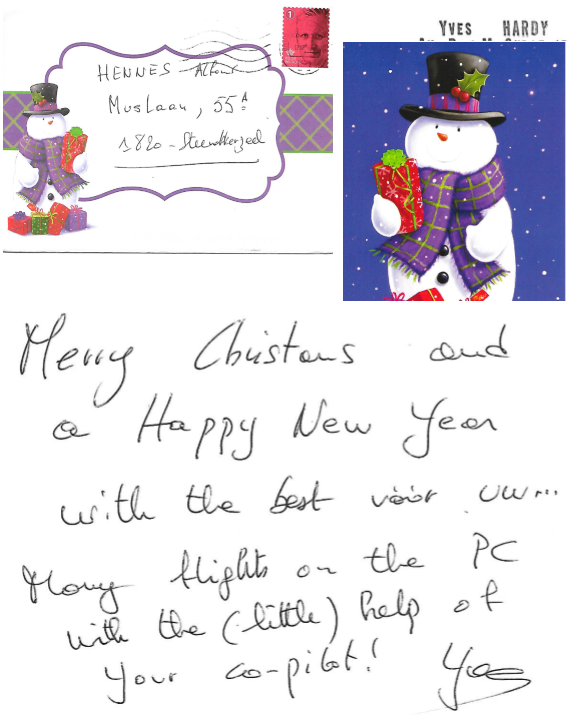 HENNES Alfons
Muslaan, 55A
1820 - Steenokkerzeel
1
YVES HARDY
Merry Christams and
a Happy New Year
with the best vóór uw...
Many flights on the PC
with the (little) help of
your co-pilot! Yves